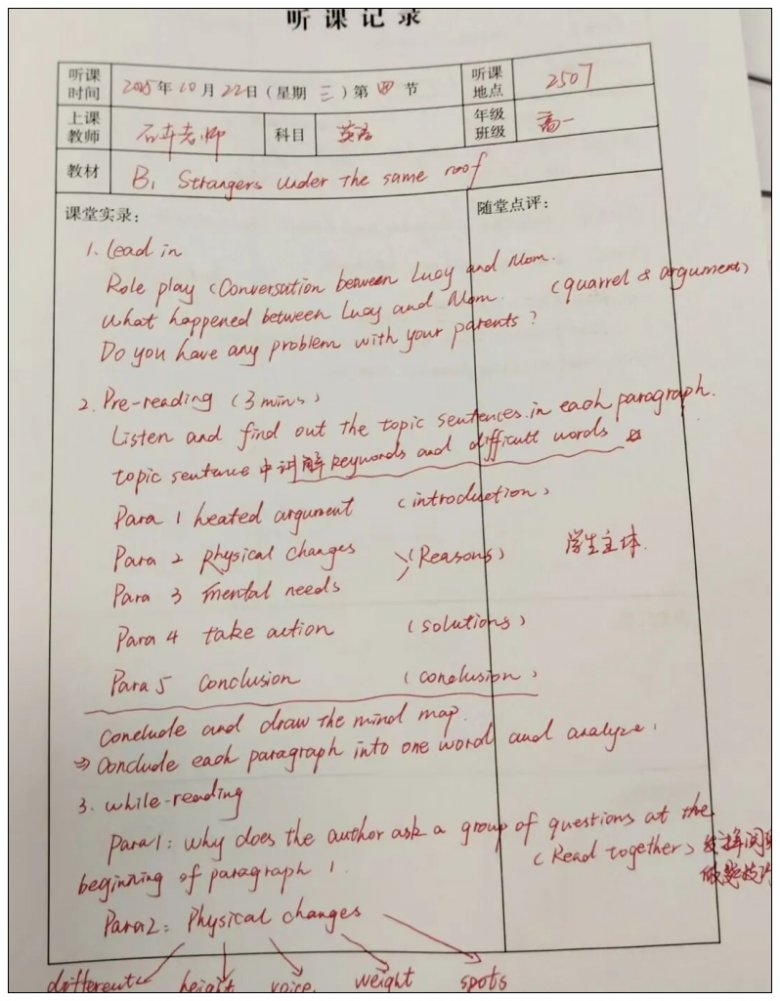 听课记录
听课时间 2025年10月22日（星期三）第四节 听课地点 2507
上课教师 石卉老师 科目 英语 年级班级 高一
教材 B1 Strangers under the same roof
课堂实录： 随堂点评：
1. Lead in
Role play (Conversation between Lucy and Mom.
What happened between Lucy and Mom. (quarrel & argument)
Do you have any problem with your parents?
2. Pre-reading (3 mins)
Listen and find out the topic sentences in each paragraph.
topic sentence 中讲解 keywords and difficult words
Para 1 heated argument (introduction)
Para 2 physical changes (Reasons) 学生主体.
Para 3 mental needs
Para 4 take action (solutions)
Para 5 conclusion (conclusion)
Conclude and draw the mind map.
⇒ Conclude each paragraph into one word and analyze.
3. while-reading
Para1: why does the author ask a group of questions at the
beginning of paragraph 1. (Read together)
做题技巧
Para2: Physical changes
different height voice weight spots